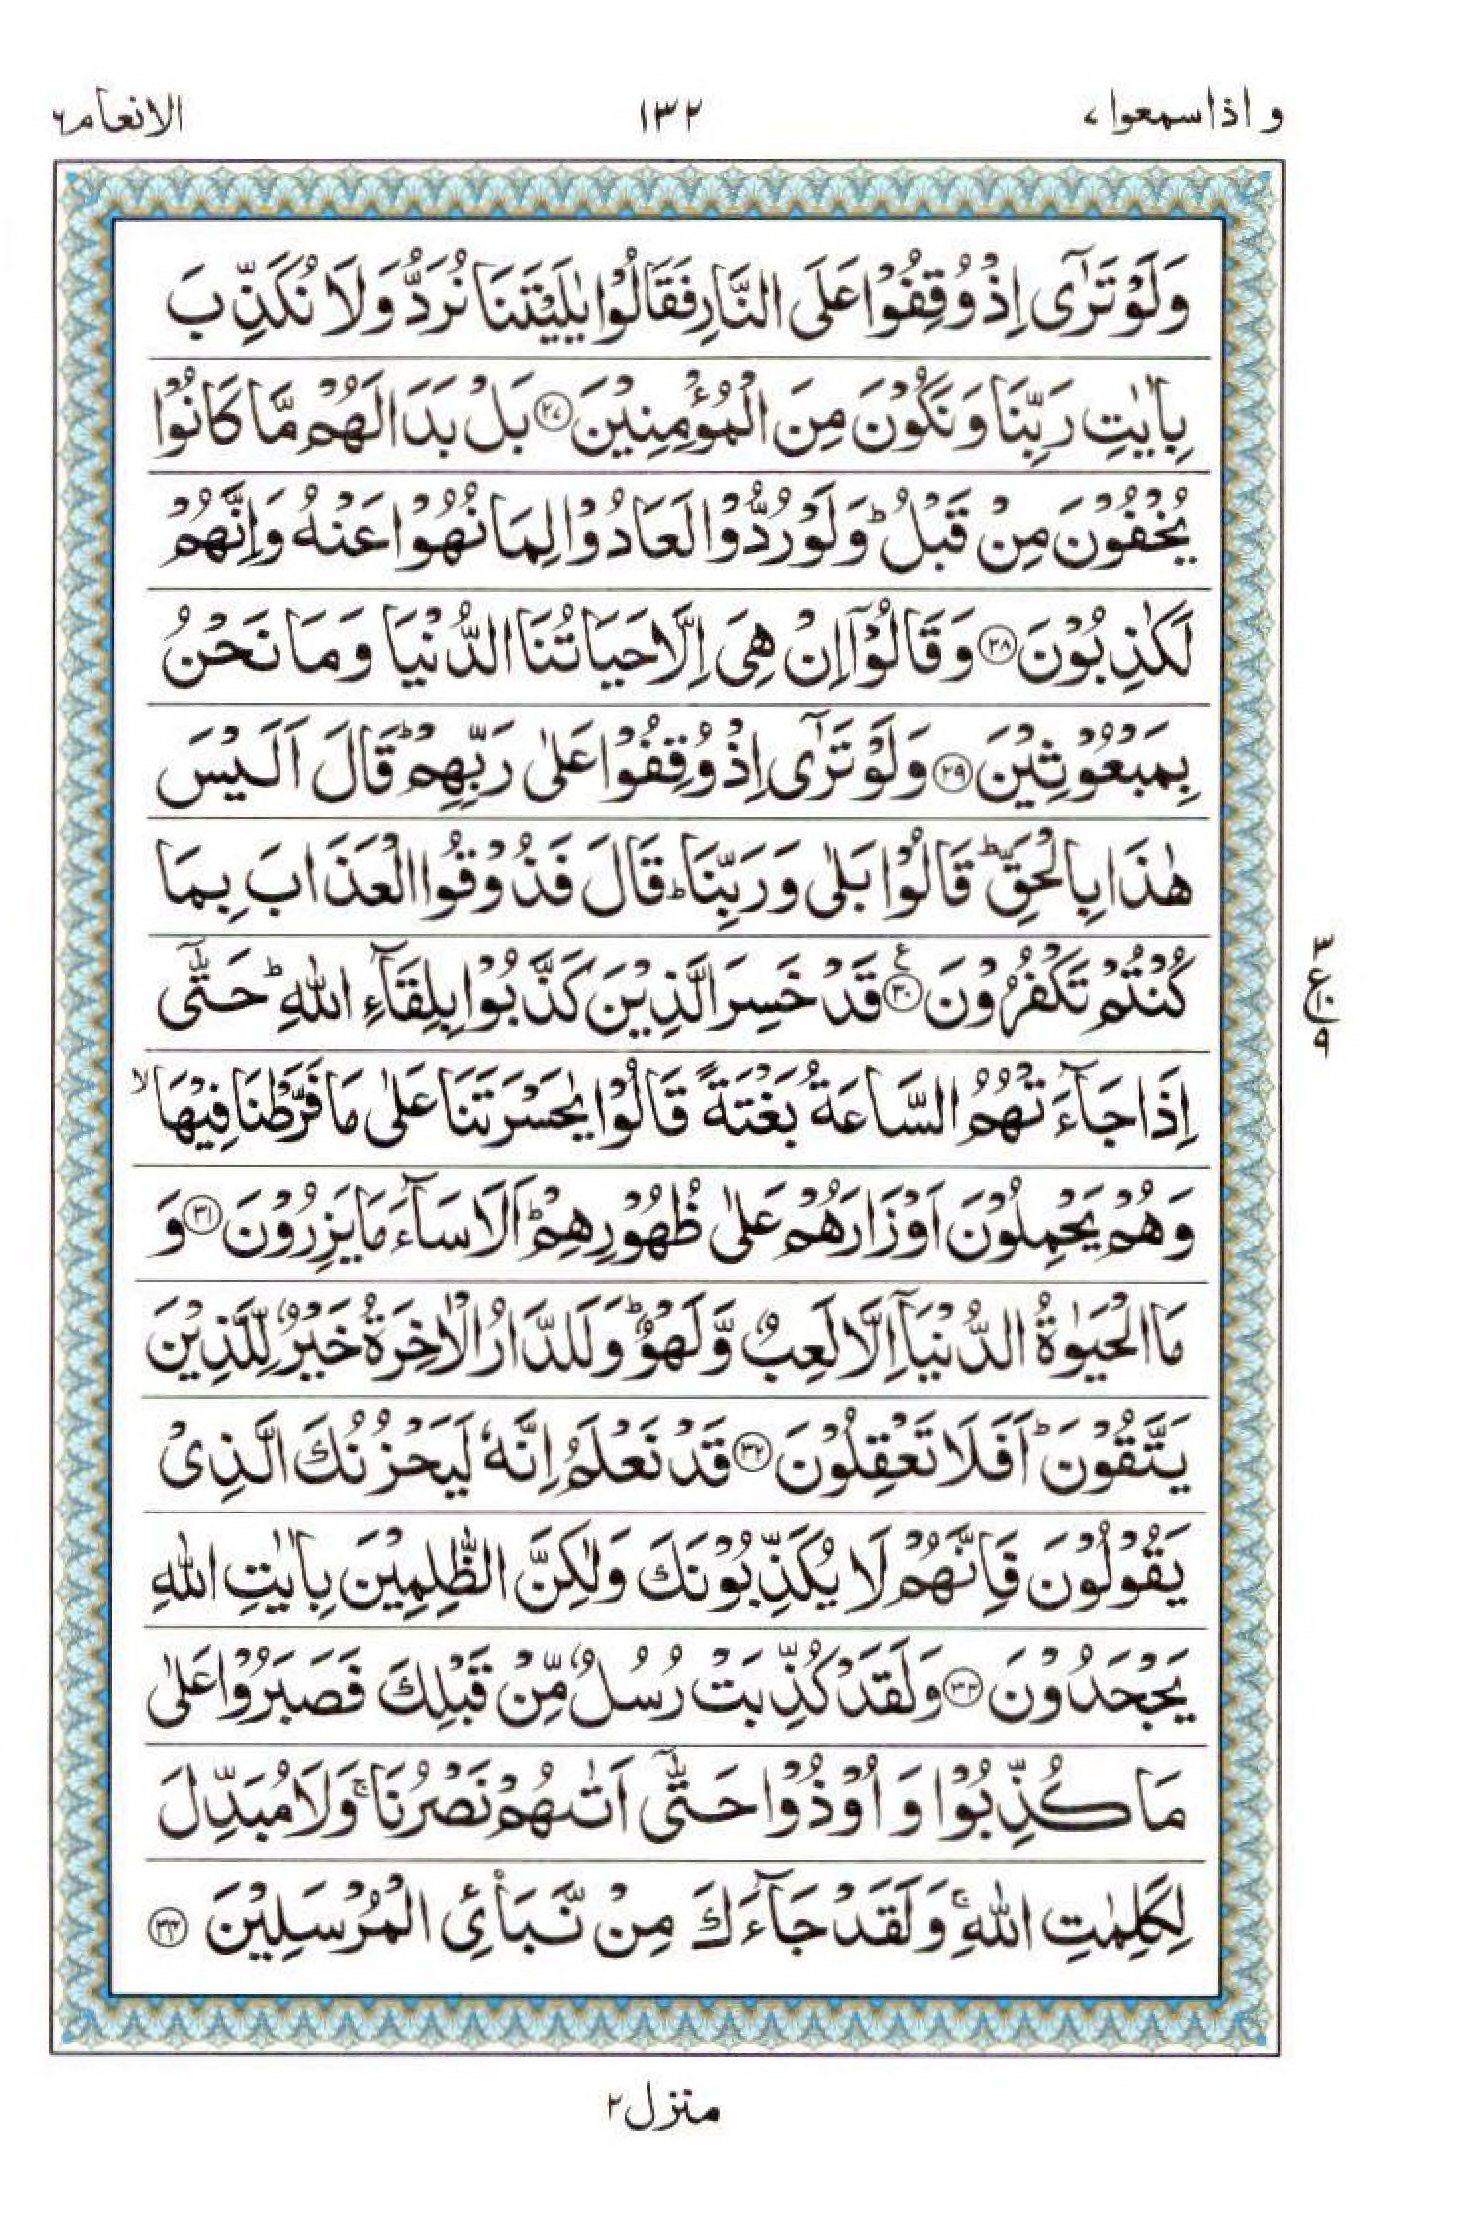 و اذا سمعوا ٧
١٣٢
الانعام ٦
وَلَوْ تَرٰٓى اِذْ وُقِفُوْا عَلَى النَّارِ فَقَالُوْا يٰلَيْتَنَا نُرَدُّ وَلَا نُكَذِّبَ
بِاٰيٰتِ رَبِّنَا وَنَكُوْنَ مِنَ الْمُؤْمِنِيْنَ ﴿٢٧﴾ بَلْ بَدَا لَهُمْ مَّا كَانُوْا
يُخْفُوْنَ مِنْ قَبْلُ ؕ وَلَوْ رُدُّوْا لَعَادُوْا لِمَا نُهُوْا عَنْهُ وَاِنَّهُمْ
لَكٰذِبُوْنَ ﴿٢٨﴾ وَقَالُوْٓا اِنْ هِىَ اِلَّا حَيَاتُنَا الدُّنْيَا وَمَا نَحْنُ
بِمَبْعُوْثِيْنَ ﴿٢٩﴾ وَلَوْ تَرٰٓى اِذْ وُقِفُوْا عَلٰى رَبِّهِمْ ؕ قَالَ اَلَيْسَ
هٰذَا بِالْحَقِّ ؕ قَالُوْا بَلٰى وَرَبِّنَا ؕ قَالَ فَذُوْقُوا الْعَذَابَ بِمَا
كُنْتُمْ تَكْفُرُوْنَ ﴿٣٠﴾ ع قَدْ خَسِرَ الَّذِيْنَ كَذَّبُوْا بِلِقَآءِ اللّٰهِ ؕ حَتّٰٓى
٣
ع
١٠
٩
اِذَا جَآءَتْهُمُ السَّاعَةُ بَغْتَةً قَالُوْا يٰحَسْرَتَنَا عَلٰى مَا فَرَّطْنَا فِيْهَا ۙ
وَهُمْ يَحْمِلُوْنَ اَوْزَارَهُمْ عَلٰى ظُهُوْرِهِمْ ؕ اَلَا سَآءَ مَا يَزِرُوْنَ ﴿٣١﴾ وَ
مَا الْحَيٰوةُ الدُّنْيَآ اِلَّا لَعِبٌ وَّلَهْوٌ ؕ وَلَلدَّارُ الْاٰخِرَةُ خَيْرٌ لِّلَّذِيْنَ
يَتَّقُوْنَ ؕ اَفَلَا تَعْقِلُوْنَ ﴿٣٢﴾ قَدْ نَعْلَمُ اِنَّهٗ لَيَحْزُنُكَ الَّذِىْ
يَقُوْلُوْنَ فَاِنَّهُمْ لَا يُكَذِّبُوْنَكَ وَلٰكِنَّ الظّٰلِمِيْنَ بِاٰيٰتِ اللّٰهِ
يَجْحَدُوْنَ ﴿٣٣﴾ وَلَقَدْ كُذِّبَتْ رُسُلٌ مِّنْ قَبْلِكَ فَصَبَرُوْا عَلٰى
مَا كُذِّبُوْا وَ اُوْذُوْا حَتّٰٓى اَتٰىهُمْ نَصْرُنَا ۚ وَلَا مُبَدِّلَ
لِكَلِمٰتِ اللّٰهِ ۚ وَلَقَدْ جَآءَكَ مِنْ نَّبَاِى الْمُرْسَلِيْنَ ﴿٣٤﴾
منزل ٢